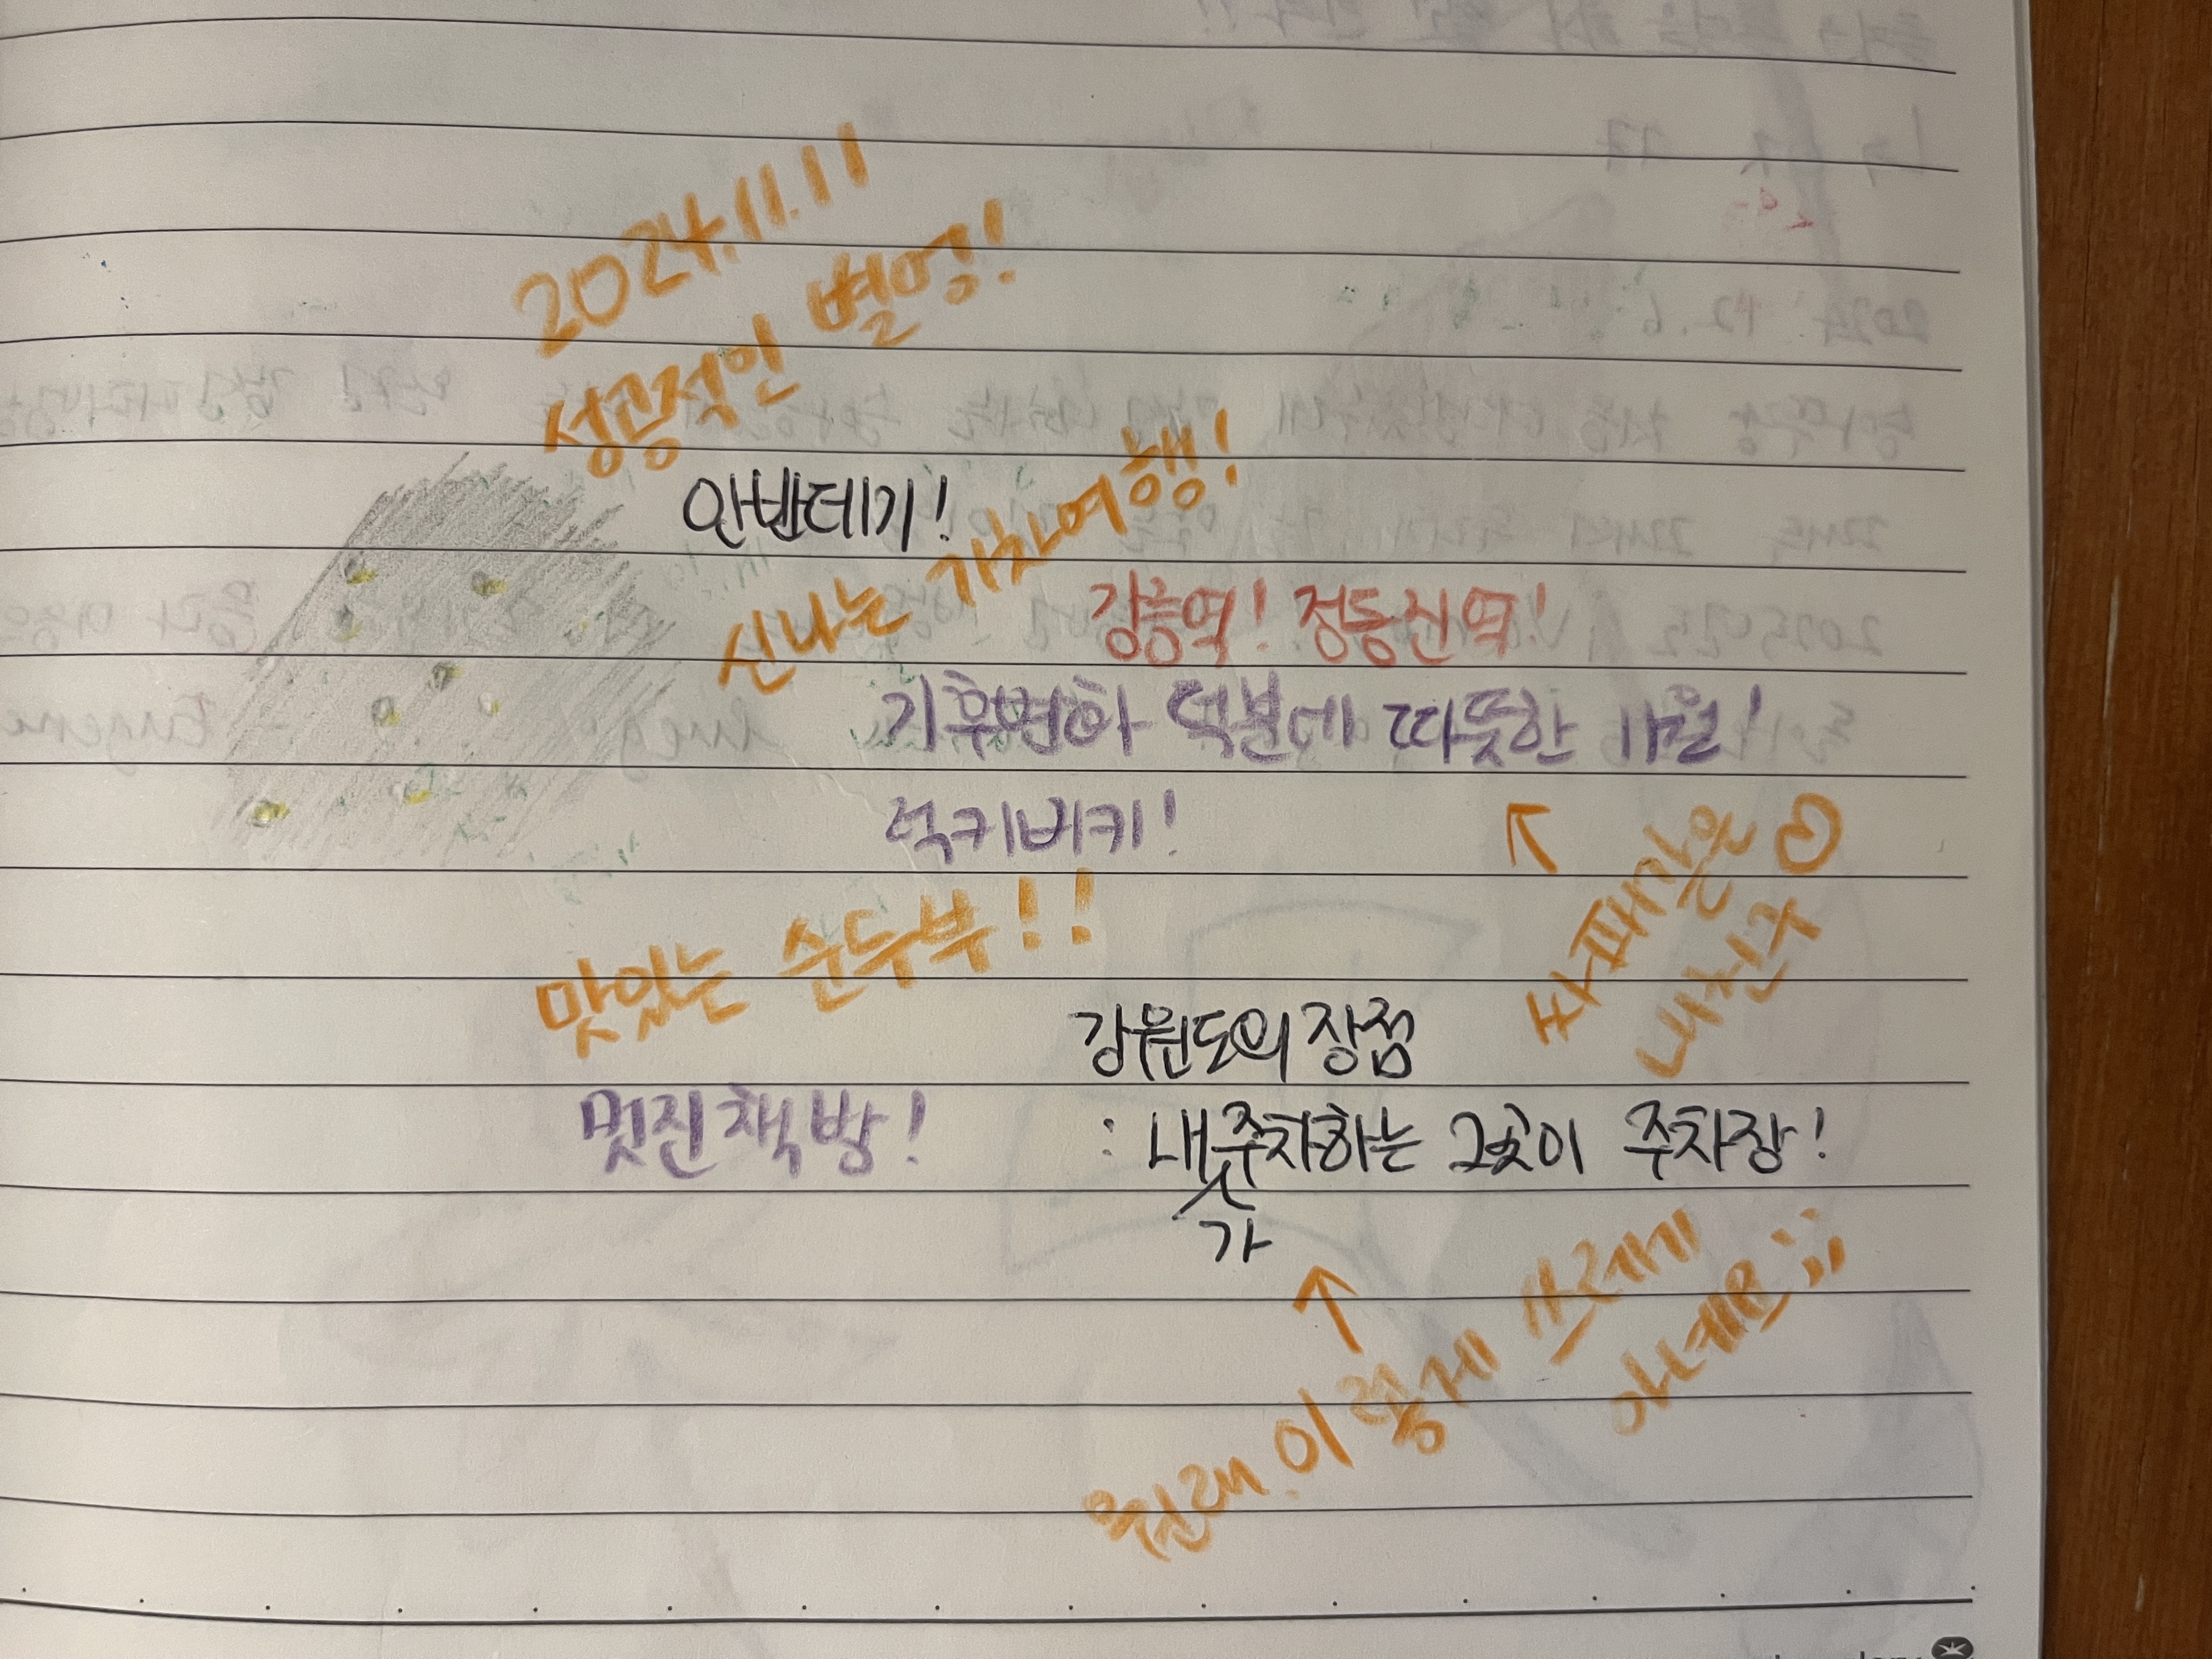 2024.11.11
성공적인 별멍!
안반데기!
신나는 기차여행!
강릉역! 정동진역!
기후변화 덕분에 따뜻한 11월!
럭키비키!
내친구
맛있는 순두부!!
강원도의 장점
멋진 책방!
: 내가 주차하는 그곳이 주차장!
원래 이렇게 쓰레기
아녜요;;